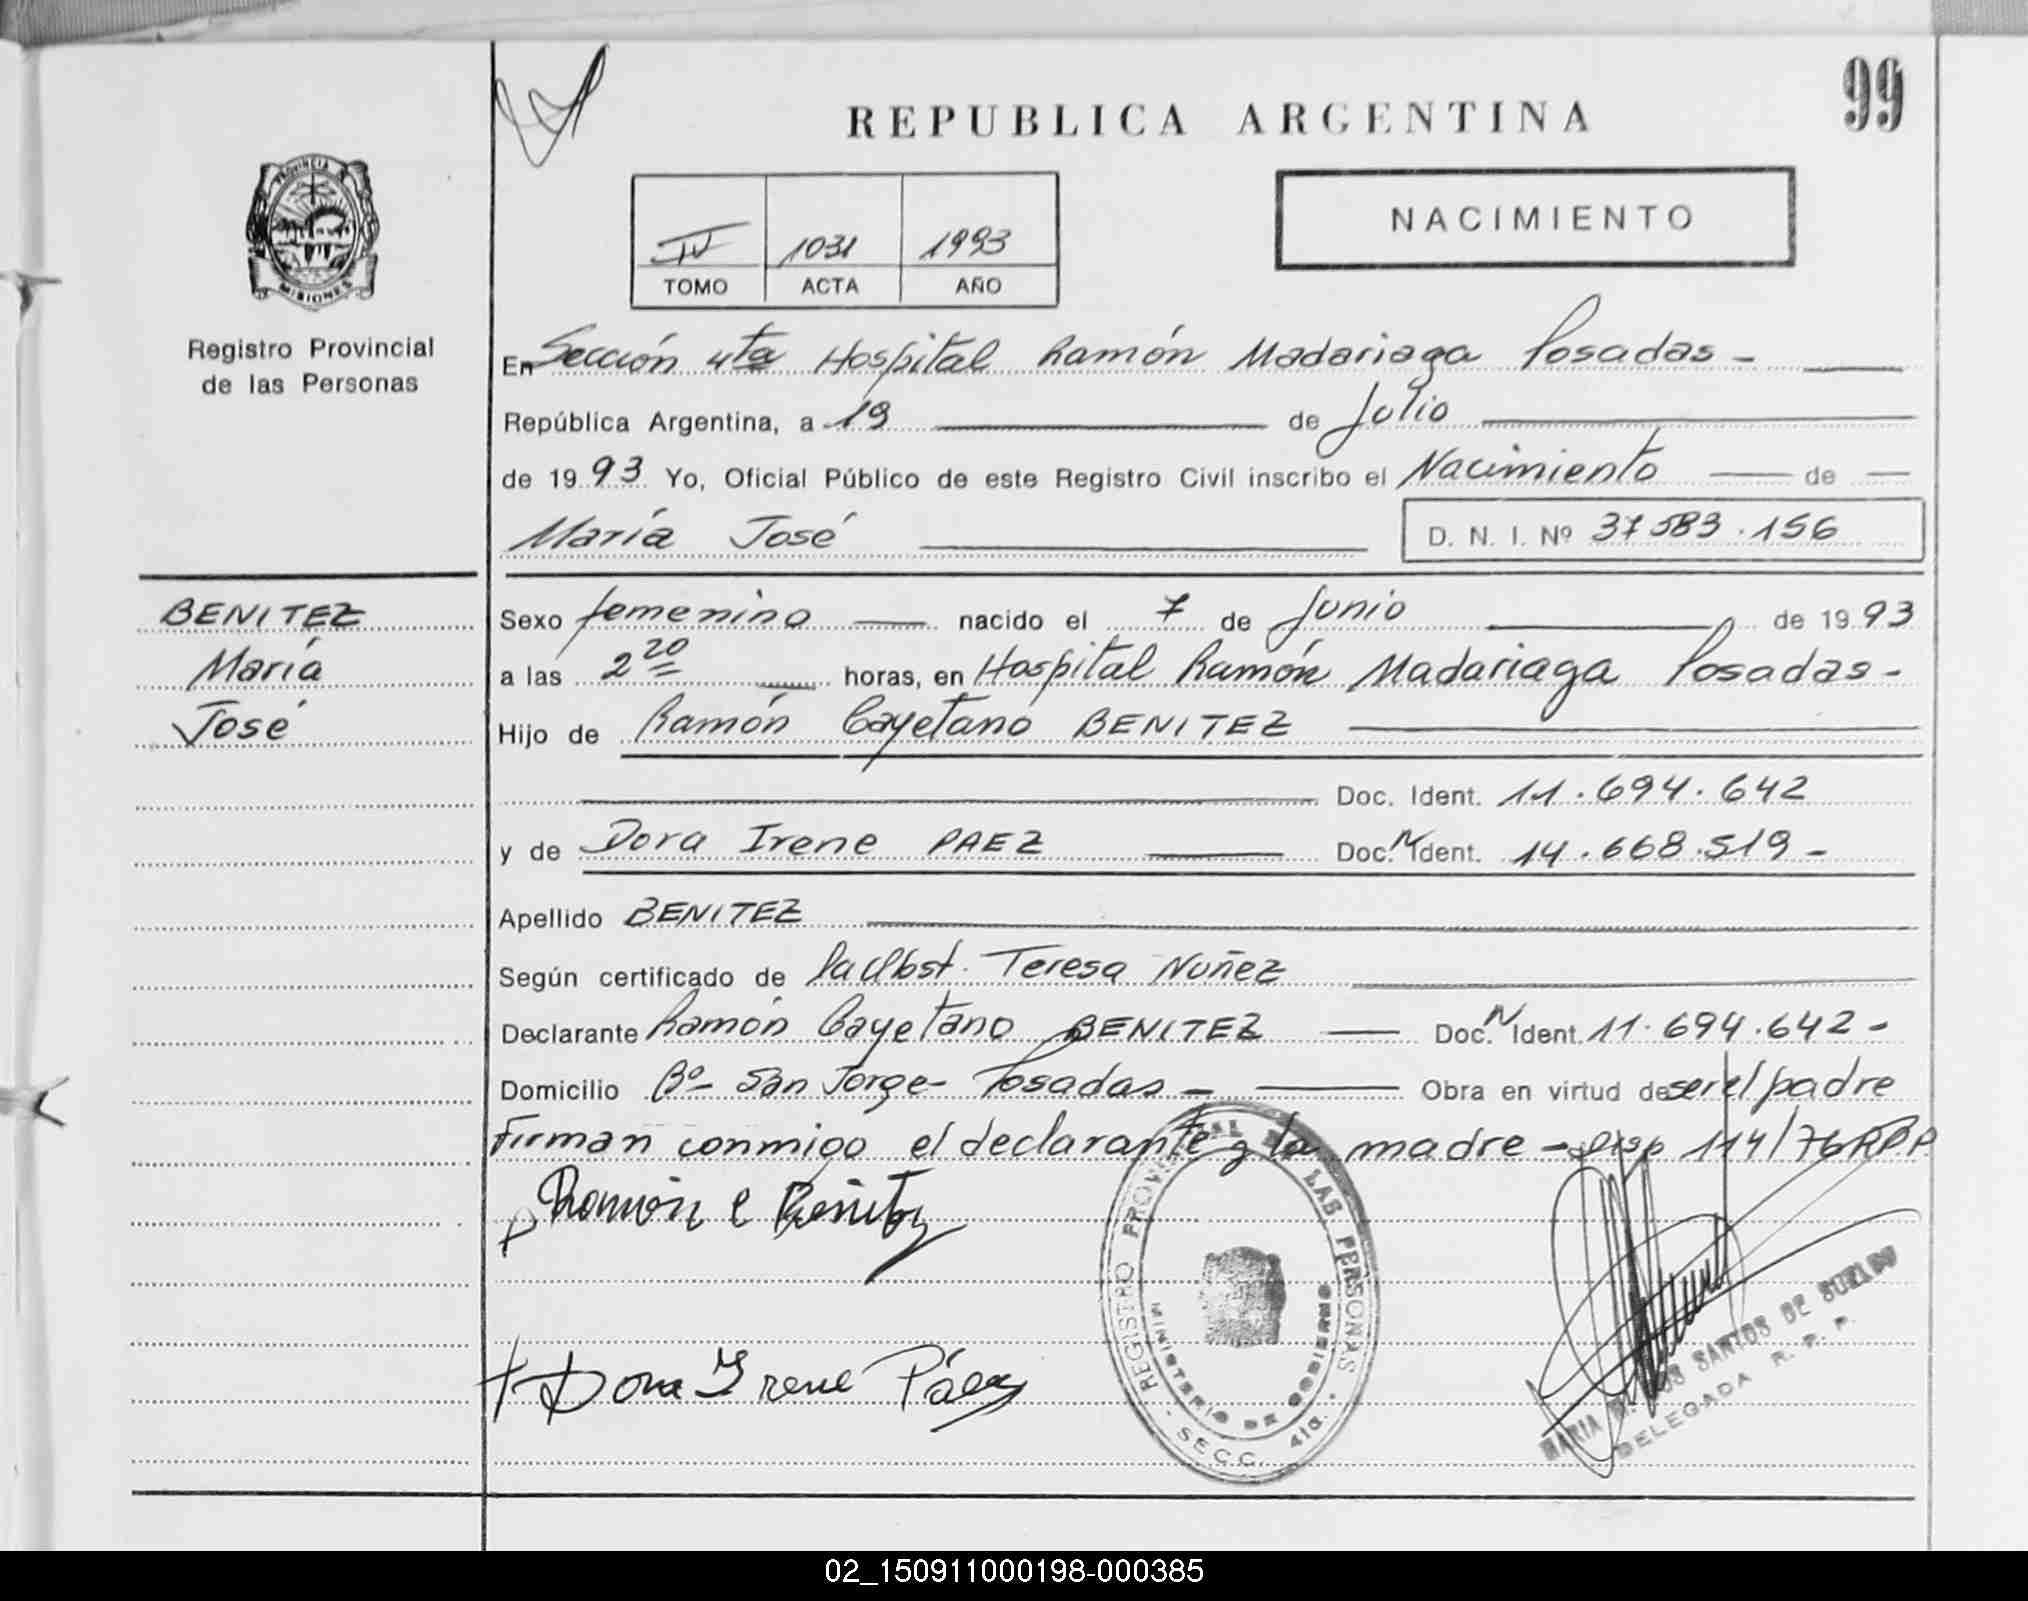 REPUBLICA ARGENTINA
99
PROVINCIA DE
MISIONES
Registro Provincial
de las Personas
IV 1031 1993
TOMO ACTA AÑO
NACIMIENTO
En Sección 4ta Hospital Ramón Madariaga Posadas -
República Argentina, a 19 de Julio
de 1993 Yo, Oficial Público de este Registro Civil inscribo el Nacimiento de
María José
D. N. I. Nº 37 583.156
BENITEZ
María
José
Sexo femenino nacido el 7 de Junio de 1993
a las 2 20 horas, en Hospital Ramón Madariaga Posadas -
Hijo de Ramón Cayetano BENITEZ
Doc. Ident. 11.694.642
y de Dora Irene PAEZ Doc. N Ident. 14.668.519 -
Apellido BENITEZ
Según certificado de la Obst. Teresa Nuñez
Declarante Ramón Cayetano BENITEZ Doc. N Ident. 11.694.642 -
Domicilio Bº - San Jorge - Posadas - Obra en virtud de ser el padre
Firman conmigo el declarante y la madre - Disp 114/76 R.P.P.
Ramón C Benitez
Dora Irene Páez
REGISTRO PROVINCIAL DE LAS PERSONAS
MINISTERIO DE GOBIERNO
SECC. 4ta.
MARIA SANTOS DE SUELDO
DELEGADA R. P. P.
02_150911000198-000385